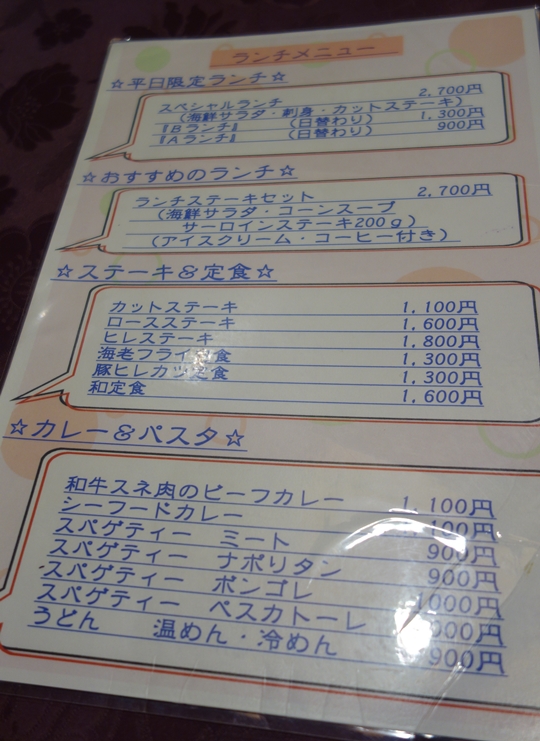 ランチメニュー
☆平日限定ランチ☆
スペシャルランチ 2,700円
（海鮮サラダ・刺身・カットステーキ）
『Bランチ』 （日替わり） 1,300円
『Aランチ』 （日替わり） 900円
☆おすすめのランチ☆
ランチステーキセット 2,700円
（海鮮サラダ・コーンスープ
サーロインステーキ200g）
（アイスクリーム・コーヒー付き）
☆ステーキ＆定食☆
カットステーキ 1,100円
ロースステーキ 1,600円
ヒレステーキ 1,800円
海老フライ定食 1,300円
豚ヒレカツ定食 1,300円
和定食 1,600円
☆カレー＆パスタ☆
和牛スネ肉のビーフカレー 1,100円
シーフードカレー 100円
スパゲティー ミート 900円
スパゲティー ナポリタン 900円
スパゲティー ボンゴレ 1000円
スパゲティー ペスカトーレ 000円
うどん 温めん・冷めん 900円